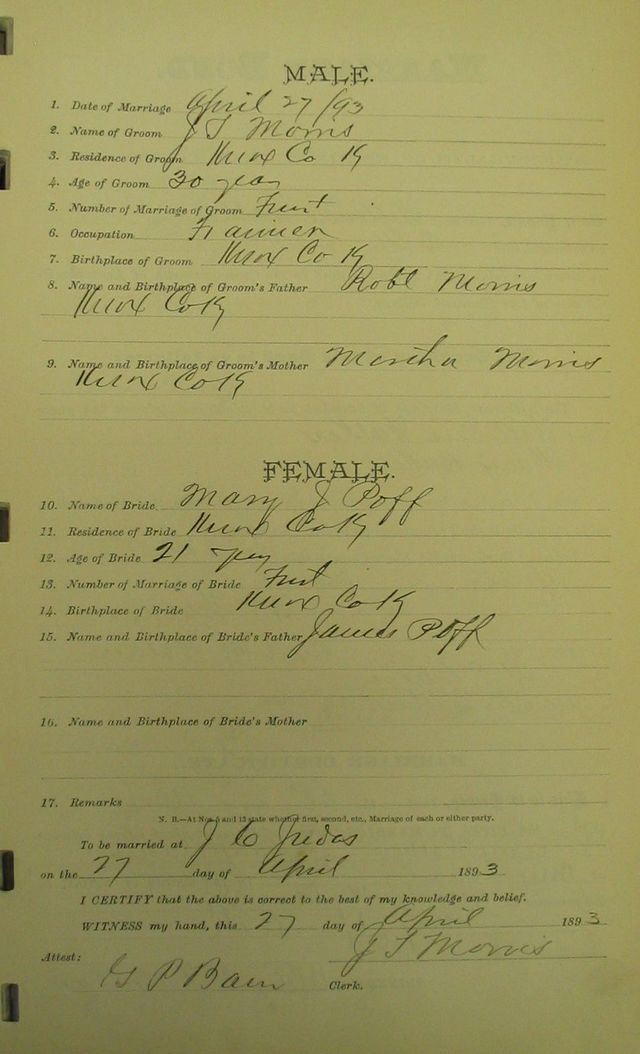 MALE.
1. Date of Marriage April 27/93
2. Name of Groom J T Morris
3. Residence of Groom Knox Co Ky
4. Age of Groom 30 years
5. Number of Marriage of Groom First
6. Occupation Farmer
7. Birthplace of Groom Knox Co Ky
8. Name and Birthplace of Groom's Father Robt Morris
Knox Co Ky
9. Name and Birthplace of Groom's Mother Martha Morris
Knox Co Ky
FEMALE.
10. Name of Bride Mary J Poff
11. Residence of Bride Knox Co Ky
12. Age of Bride 21 yrs
13. Number of Marriage of Bride First
14. Birthplace of Bride Knox Co Ky
15. Name and Birthplace of Bride's Father James Poff
16. Name and Birthplace of Bride's Mother
17. Remarks
N. B.—At Nos. 5 and 13 state whether first, second, etc., Marriage of each or either party.
To be married at J C
on the 27 day of April 1893
I CERTIFY that the above is correct to the best of my knowledge and belief.
WITNESS my hand, this 27 day of April 1893
J T Morris
Attest:
G P Bain Clerk.